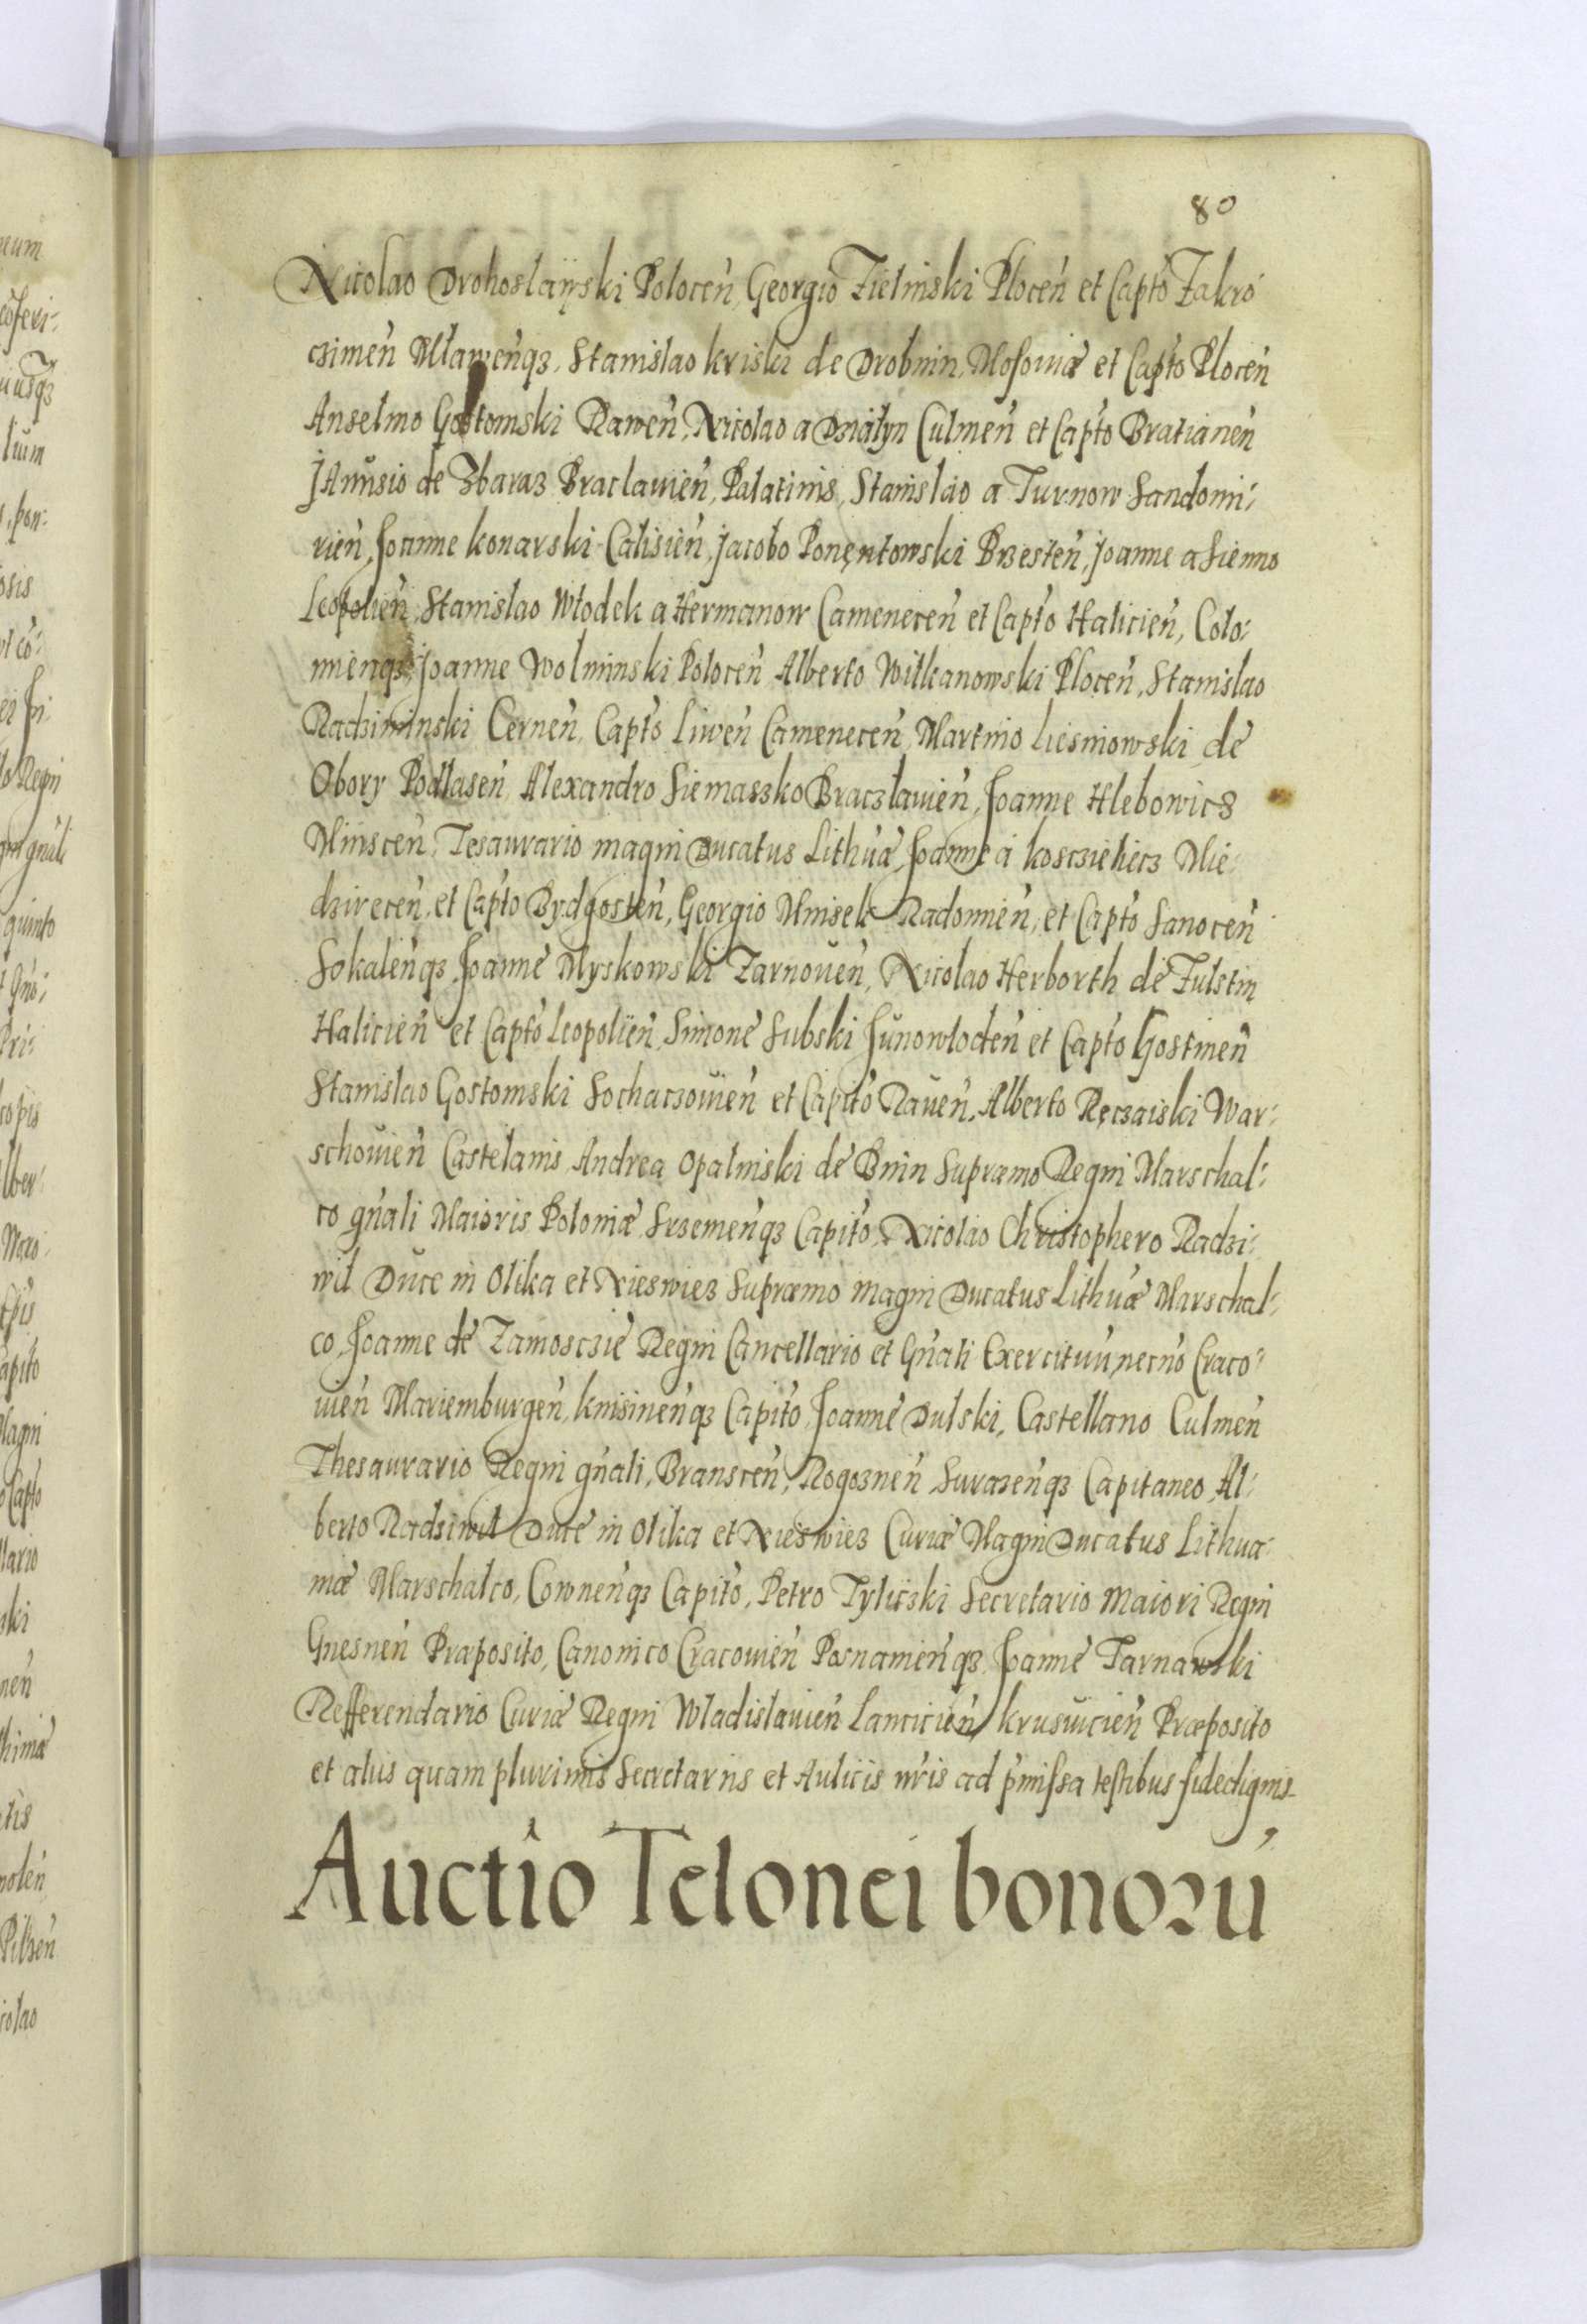 80
Nicolao Drohoslaÿski Poloceń, Georgio Zielinski Ploceń et Capto Zakro
czimeń Mławeńqз, Stanislao kriski de Drobnin, Mosouiæ et Capto Ploceń
Anselmo Gostomski Raweń, Nicolao a Dzialyn Culmeń et Capto Bratianeń
JAnusio de Zbaraz Braclauień, Palatinis, Stanislao a Turnow Sandomi:
rień, Joanne konarski Calisień, Jacobo Ponętowski Brzesteń, Joanne a Sienno
Leopolień, Stanislao Włodek a Hermanow Cameneceń et Capto Halicień, Colo:
mieńqз, Joanne Wolminski Poloceń Alberto Wilkanowski Ploceń, Stanislao
Radziminski Cerneń, Capto Liweń Cameneceń, Martino Liesniowski de
Obory Podlaseń, Alexandro Siemaszko Braczlauień, Joanne Hlebowicz
Minsceń, Tesaurario magni Ducatus Lithuæ, Joanne a kosczieliecz Mie:
dzireceń, et Capto Bydgosteń, Georgio Mnisek Radomień, et Capto Sanoceń
Sokaleńqз Joanne Myskowski Zarnoueń, Nicolao Herborth de Fulstin
Halicień et Capto Leopolień, Simone Subski Junowlodeń et Capto Gostineń
Stanislao Gostomski Sochaczouień et Capito Raueń, Alberto Ręczaiski War:
schouień Castelanis, Andrea Opalinski de Bnin Supræmo Regni Marschal:
co gńali Maioris Poloniæ, Srzemeńqз Capito, Nicolao Christophero Radzi:
wil Duce in Olika et Nieswiez Supræmo magni Ducatus Lithuæ Marschal:
co, Joanne de Zamosczie Regni Cancellario et Gńali Exercituu, necno Craco:
uień Mariemburgeń, knisineńqз Capito, Joanne Dulski, Castellano Culmeń
Thesaurario Regni gńali, Bransceń, Rogozneń Surazeńqз Capitaneo, Al:
berto Radziwil Duce in Olika et Nieswiez Curiæ Magni Ducatus Lithua:
niæ Marschalco, Cowneńqз Capito, Petro Tyliczki Secretario Maiori Regni
Gnesneń Præposito, Canonico Cracouień Posnanieńqз, Joanne Tarnawski
Refferendario Curiæ Regni Wladislauień Lancicień, kruswicień Præposito
et aliis quam plurimis Secretariis et Aulicis nris ad pmissa testibus fidedignis.
Auctio Telonei bonorú